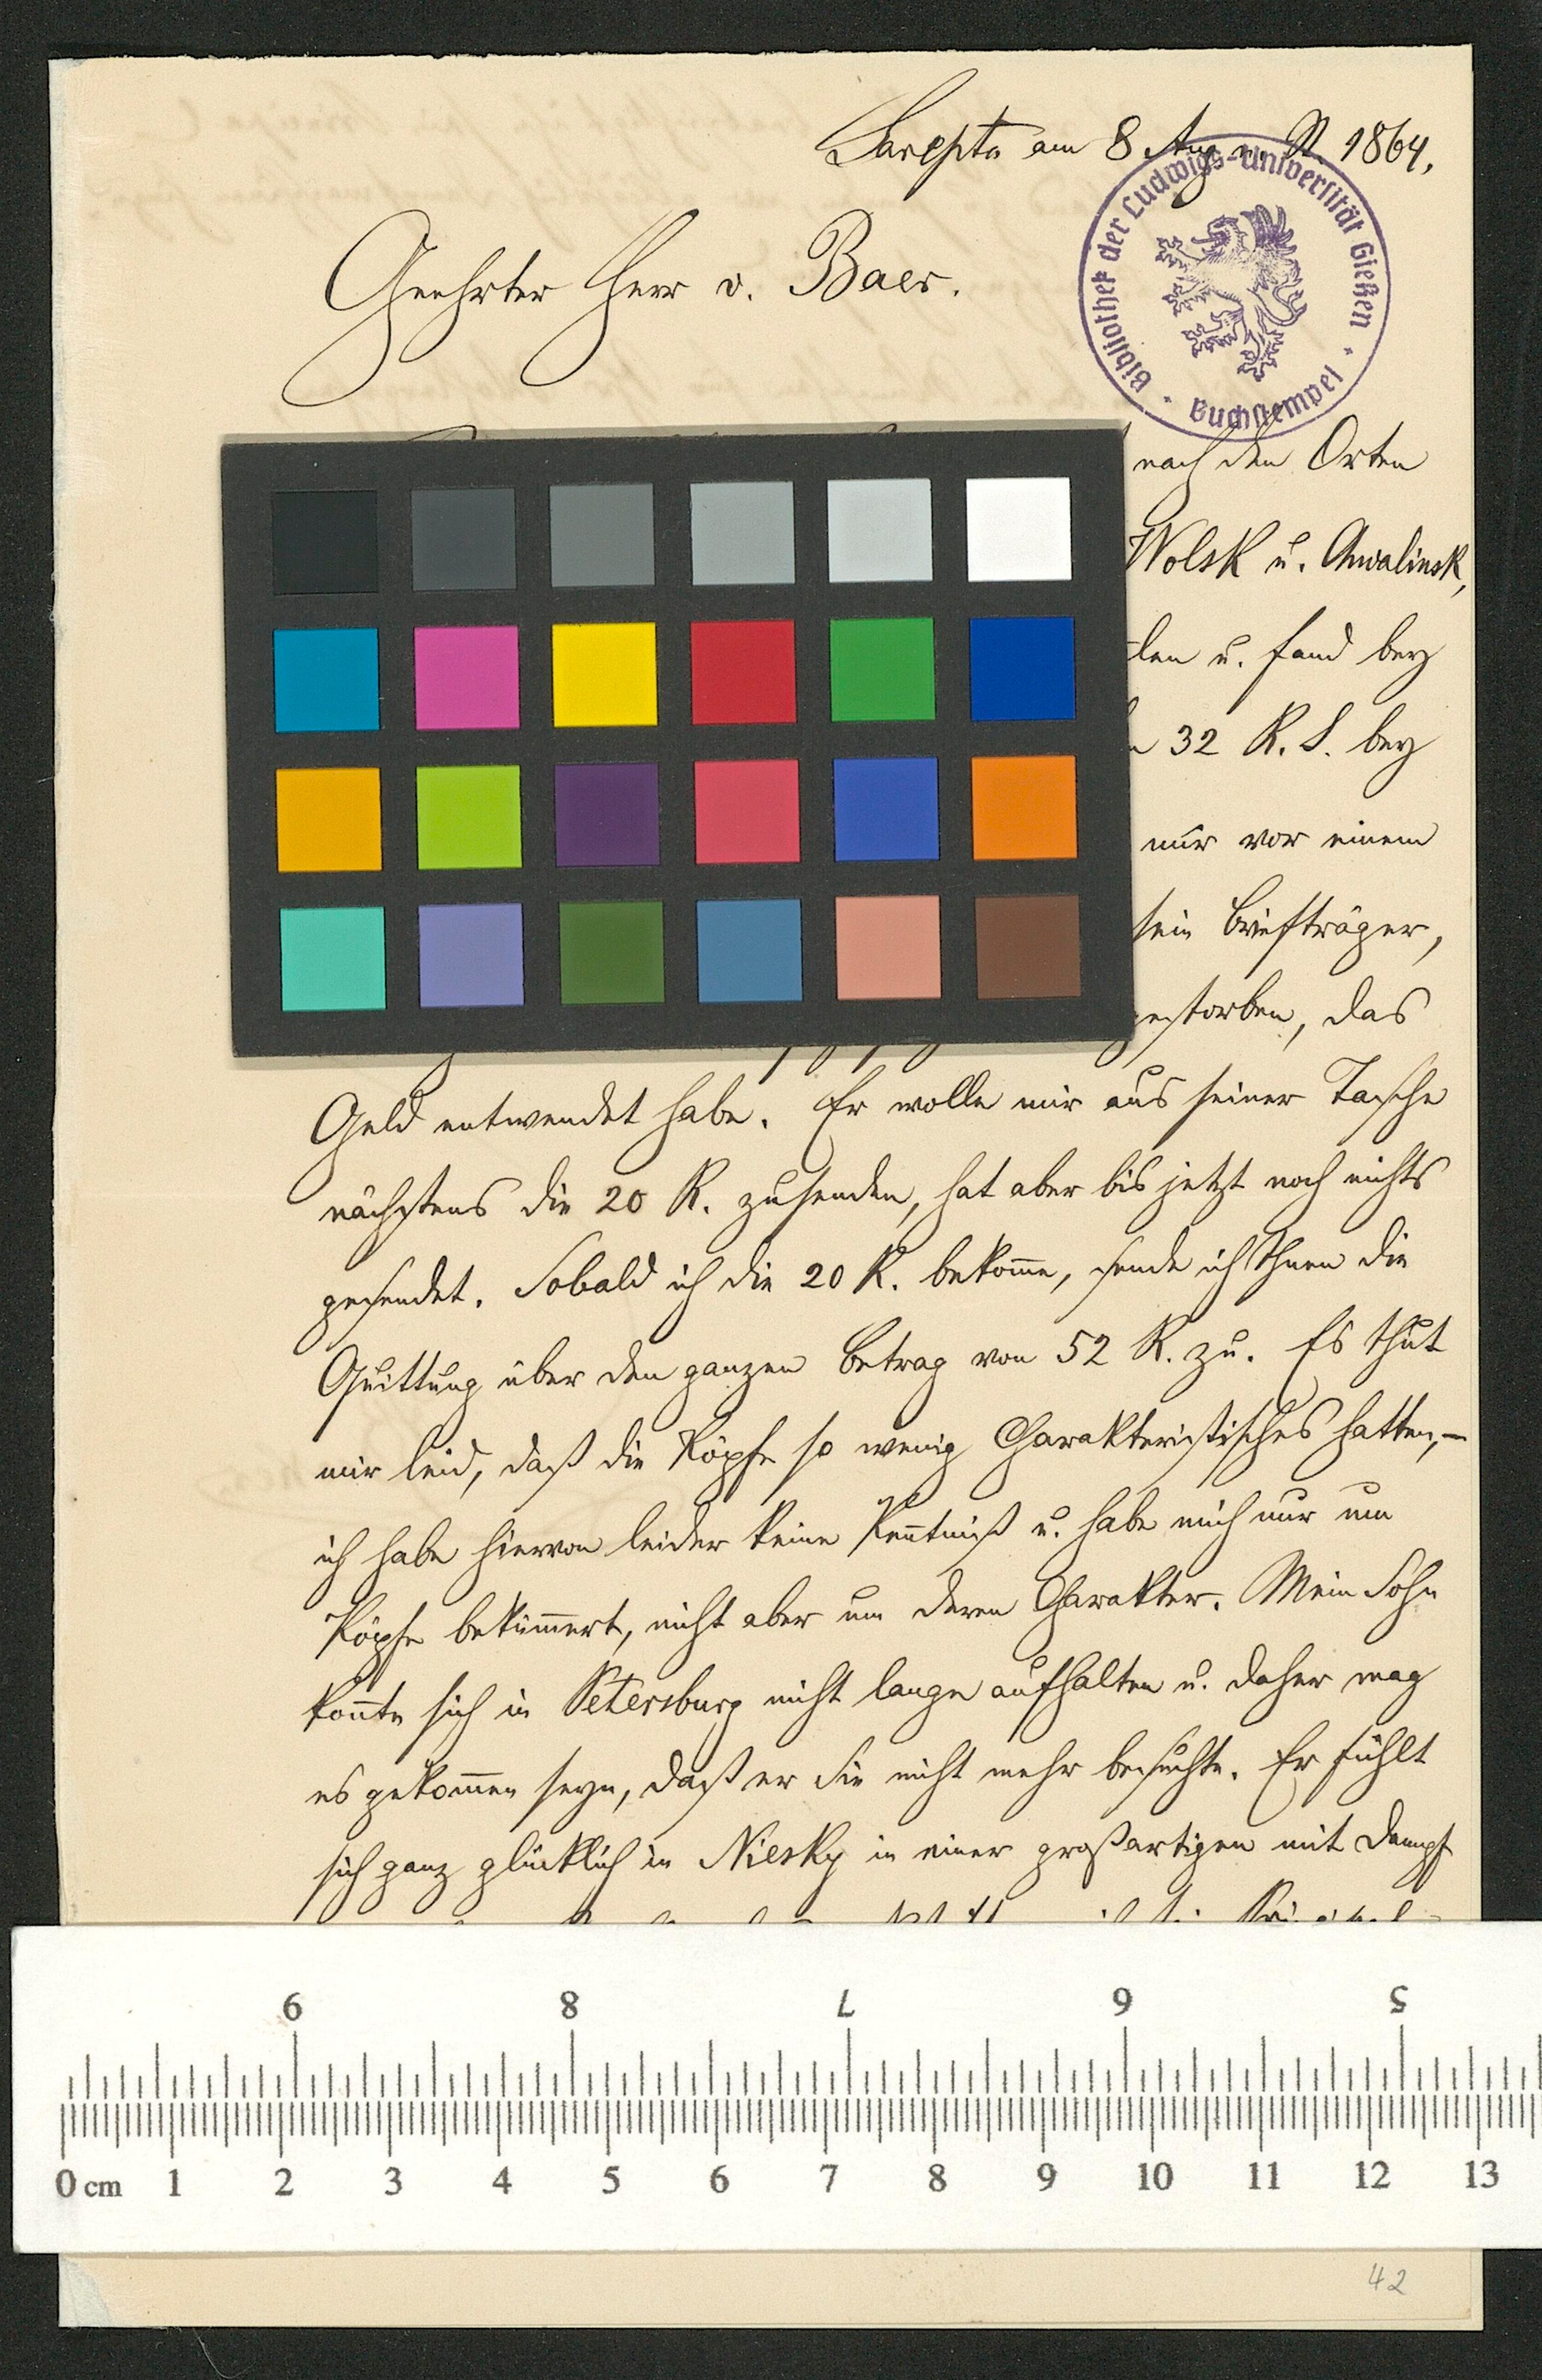 Sarepta am 8 Aug n. St. 1864.
Bibliothek der Ludwigs-Universität Gießen
Buchstempel
Geehrter Herr v. Baer.
nach den Orten
Wolsk u. Chwalinsk,
len u. fand bey
32 R. S. bey
nur vor einem
sein Briefträger,
gestorben, das
Geld entwendet habe. Er wolle mir aus seiner Tasche
nächstens die 20 R. zusenden, hat aber bis jetzt noch nichts
gesendet. Sobald ich die 20 R. bekom̅e, sende ich Ihnen die
Quittung über den ganzen Betrag von 52 R. zu. Es thut
mir leid, daß die Köpfe so wenig Charakteristisches hatten, –
ich habe hiervon leider keine Ken̅tniß u. habe mich nur um
Köpfe beküm̅ert, nicht aber um deren Charakter. Mein Sohn
kon̅te sich in Petersburg nicht lange aufhalten u. daher mag
es gekom̅en seyn, daß er Sie nicht mehr besuchte. Er fühlt
sich ganz glücklich in Niesky in einer großartigen mit Dampf
9 8 7 6 5
0 cm 1 2 3 4 5 6 7 8 9 10 11 12 13
42